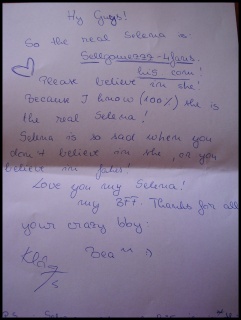 Hy Guys!
So the real Selena is:
Selgomez99-4fans.
big com!
Please believe in she!
Because I know (100%) she is
the real Selena!
Selena is so sad when you
don't believe in she, or you
believe in fakes!
Love you my Selena!
my BFF. Thanks for all
your crazy bby:
Bea ^^ :)